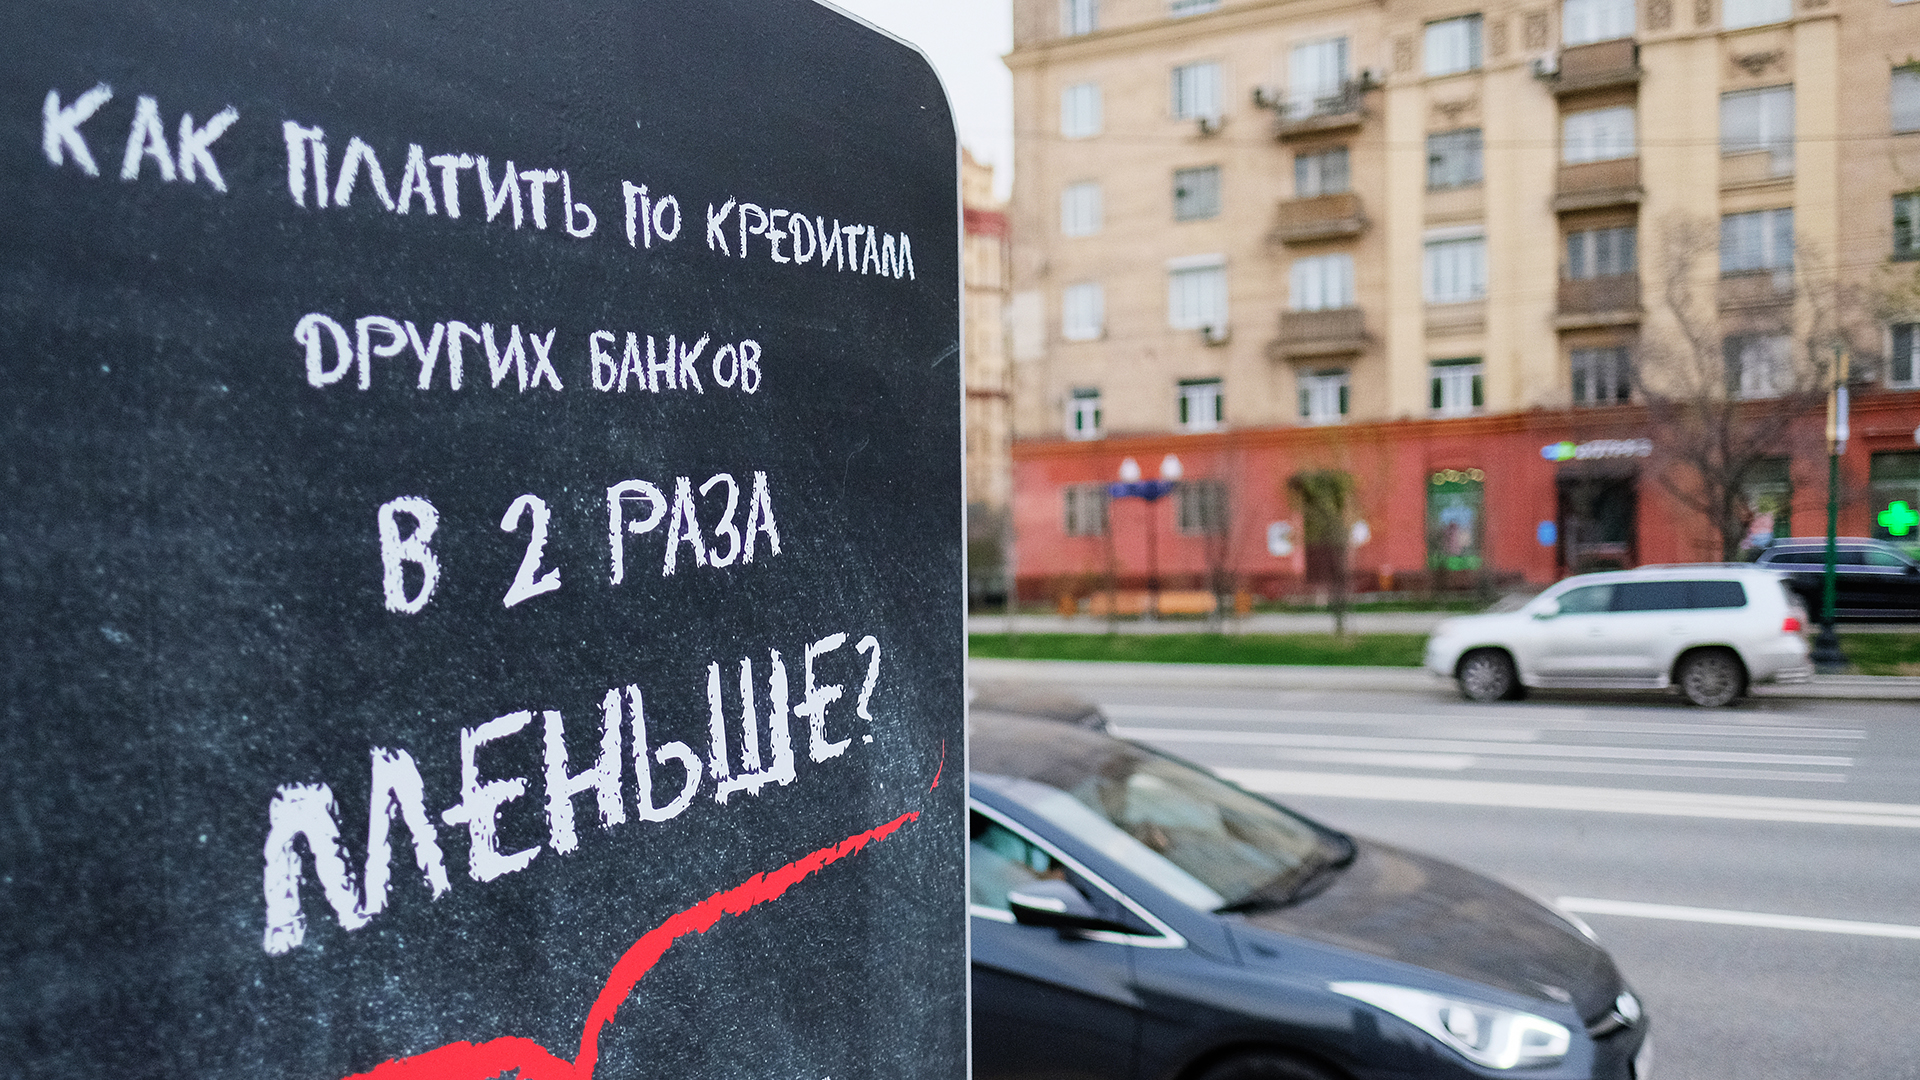 КАК ПЛАТИТЬ ПО КРЕДИТАМ
ДРУГИХ БАНКОВ
В 2 РАЗА
МЕНЬШЕ?